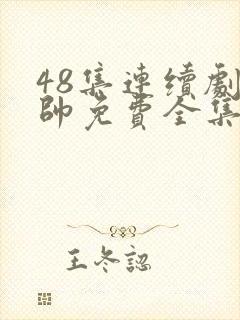 48集連續劇
帥免費全集
王冬認